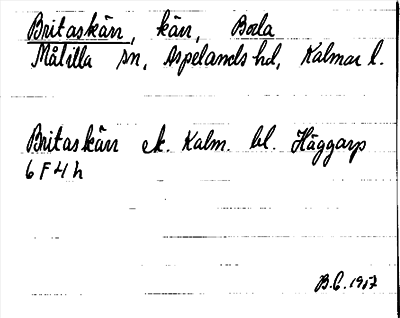 Britaskärr, kärr, Boda
Målilla sn, Aspelands hd, Kalmar l.
Britaskärr ek. Kalm. bl. Häggarp
6 F 4 h
B.C. 1917